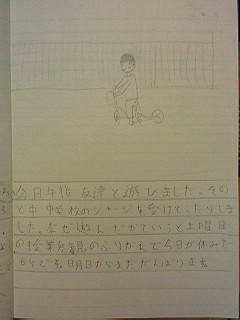 今日午後友達と遊びました。その
と中中学校のジャージを受けとったりしま
した。なぜ遊んだかというと土曜日
の授業参観のふりかえで今日が休みだ
からです。明日からまたがんばります